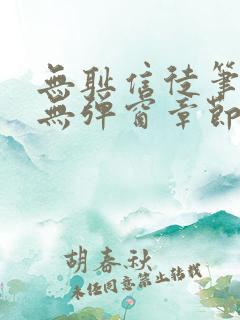 無耻信徒筆
無彈窗章節
胡春秋
未经同意禁止转载